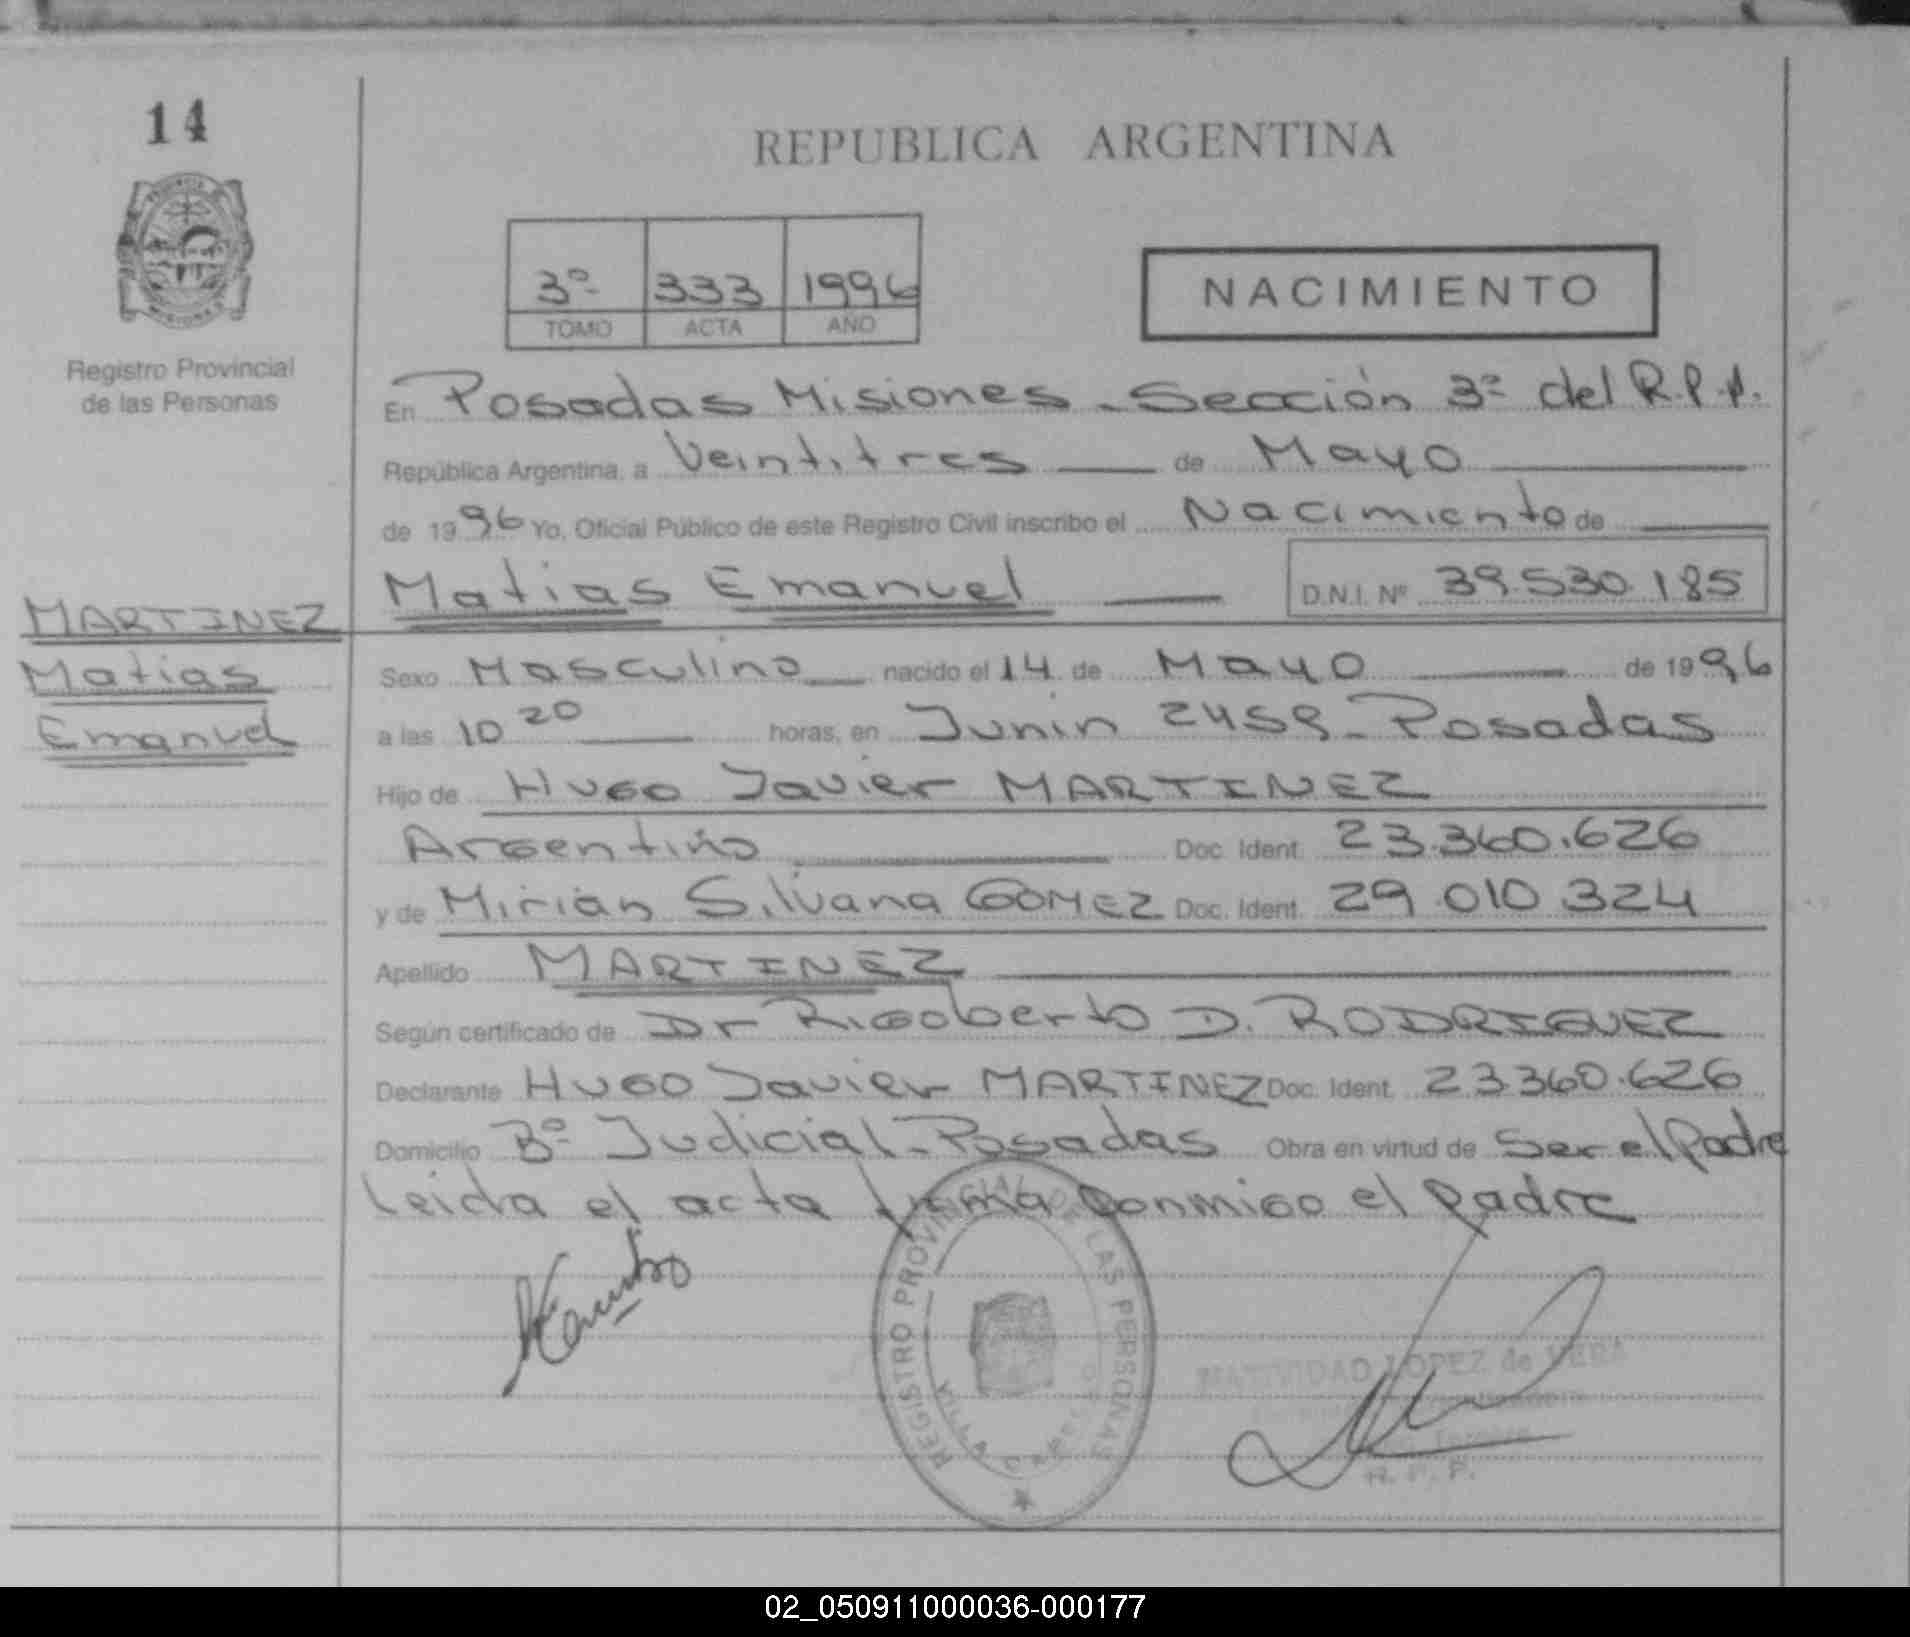 14
REPUBLICA ARGENTINA
MISIONES
Registro Provincial
de las Personas
3º 333 1996
TOMO ACTA AÑO
NACIMIENTO
En Posadas Misiones - Sección 3ª del R.P.P.
República Argentina, a Veintitres de Mayo
de 1996 Yo, Oficial Público de este Registro Civil inscribo el Nacimiento de
Matias Emanuel D.N.I. Nº 39.530.185
MARTINEZ
Matias
Emanuel
Sexo Masculino nacido el 14 de Mayo de 1996
a las 10 20 horas, en Junin 2459 - Posadas
Hijo de Hugo Javier MARTINEZ
Argentino Doc. Ident. 23.360.626
y de Mirian Silvana GOMEZ Doc. Ident. 29.010.324
Apellido MARTINEZ
Según certificado de Dr Rigoberto D. RODRIGUEZ
Declarante Hugo Javier MARTINEZ Doc. Ident. 23.360.626
Domicilio Bº Judicial - Posadas Obra en virtud de Ser el Padre
Leida el acta firma conmigo el padre
REGISTRO PROVINCIAL DE LAS PERSONAS
VILLA
NATIVIDAD LOPEZ de VERA
R. P. P.
02_050911000036-000177